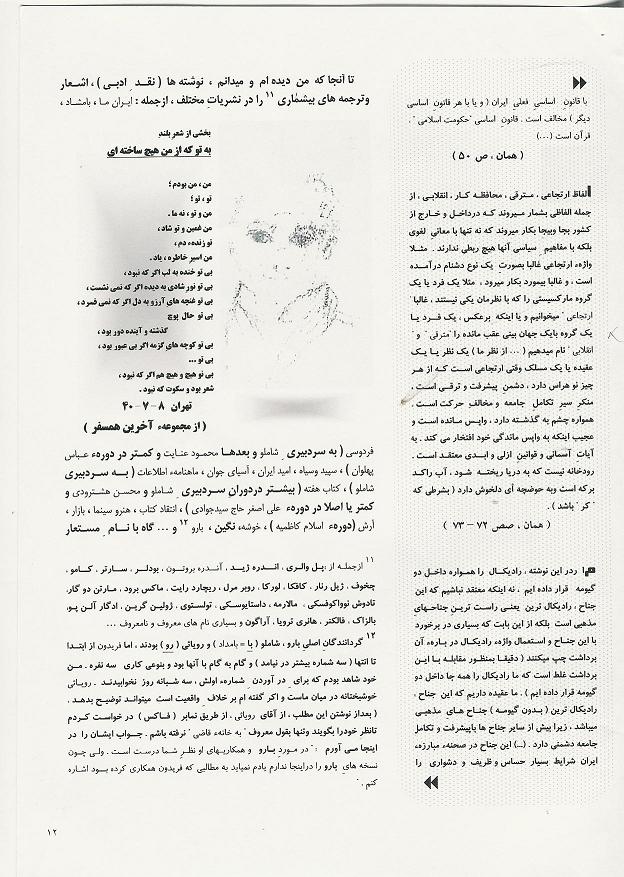 تا آنجا که من دیده ام و میدانم ، نوشته ها ( نقد ادبی ) ، اشعار
وترجمه های بیشماری ۱۱ را در نشریات مختلف ، ازجمله : ایران ما ، بامشاد ،
بخشی از شعر بلند
به تو که از من هیچ ساخته ای
من ، من بودم ؛
تو ، تو ؛
من و تو ، نه ما .
من غمین و تو شاد ،
تو زنده‌ء دم ،
من اسیر خاطره ، یاد .
بی تو خنده به لب اگر که نبود ،
بی تو نور شادی به دیده اگر که نمی نشست ،
بی تو غنچه های آرزو به دل اگر که نمی فسرد ،
بی تو حال پوچ
گذشته و آینده دور بود ،
بی تو کوچه های گزمه اگر بی عبور بود ،
بی تو ...
بی تو هیچ و هیچ هم اگر که نبود ،
شعر بود و سکوت که نبود .
تهران ۸ - ۷ - ۴۰
( از مجموعه‌ء آخرین همسفر )
فردوسی ( به سردبیری شاملو و بعدها محمود عنایت و کمتر در دوره‌ء عباس
پهلوان ) ، سپید وسیاه ، امید ایران ، آسیای جوان ، ماهنامه‌ء اطلاعات ( به سردبیری
شاملو ) ، کتاب هفته ( بیشتر دردوران سردبیری شاملو و محسن هشترودی و
کمتر یا اصلا در دوره‌ء علی اصغر حاج سیدجوادی ) ، انتقاد کتاب ، هنرو سینما ، بازار ،
آرش (دوره‌ء اسلام کاظمیه ) ، خوشه ، نگین ، بارو ۱۲ و ... گاه با نام مستعار
۱۱ ازجمله از :پل والری ، اندره ژید ، آندره بروتون ، بودلر ، سارتر ، کامو ،
چخوف ، ژیل رنار ، کافکا ، لورکا ، روبر مرل ، ریچارد رایت ، ماکس برود ، مارتن دو گار،
تادوش نوواکوفسکی ، مالارمه ، داستایوسکی ، تولستوی ، ژولین گرین ، ادگار آلن پو،
بالزاک ، فالکنر ، هانری ترویا ، آراگون و بسیاری نام های معروف و نامعروف ...
۱۲ گردانندگان اصلی بارو ، شاملو ( با = بامداد ) و رویائی ( رو ) بودند ، اما فریدون از ابتدا
تا انتها ( سه شماره بیشتر در نیامد ) و گام به گام با آنها بود و بنوعی کاری سه نفره . من
خود شاهد بودم که برای در آوردن شماره‌ء اولش ، سه شبانه روز نخوابیدند . رویائی
خوشبختانه در میان ماست و اکر گفته ام بر خلاف واقعیت است میتواند توضیح بدهد .
( بعداز نوشتن این مطلب ، از آقای رویائی ، از طریق نمابر ( فـاکس ) در خواست کردم
تانظر خودرا بگوید وتنها بقول معروف " به خانه‌ء قاضی " نرفته باشم . جواب ایشان را در
اینجا می آورم : " در مورد بارو و همکاریهای او نظر شما درست است . ولی چون
نسخه های بارو را دراینجا ندارم یادم نمیاید به مطالبی که فریدون همکاری کرده بود اشاره
کنم . "
با قانون اساسی فعلی ایران ( و یا با هر قانون اساسی
دیگر ) مخالف است . قانون اساسی "حکومت اسلامی " ،
قرآن است (...)
( همان ، ص ۵۰ )
الفاظ ارتجاعی ، مترقی ، محافظه کار ، انقلابی ، از
جمله الفاظی بشمار میروند که درداخل و خارج از
کشور بجا وبیجا بکار میروند که نه تنها با معانی لغوی
بلکه با مفاهیم سیاسی آنها هیچ ربطی ندارند . مثلا
واژه‌ء ارتجاعی غالبا بصورت یک نوع دشنام درآمده
است ، و غالبا بیمورد بکار میرود ، مثلا یک فرد یا یک
گروه مارکسیستی را که با نظرمان یکی نیستند ، غالبا
"ارتجاعی" میخوانیم و یا اینکه برعکس ، یک فرد یا
یک گروه بایک جهان بینی عقب مانده را "مترقی" و "
انقلابی " نام میدهیم ( ... از نظر ما ) یک نظر یا یک
عقیده یا یک مسلک وقتی ارتجاعی است که از هر
چیز نو هراس دارد ، دشمن پیشرفت و ترقی است ،
منکر سیر تکامل جامعه و مخالف حرکت است .
همواره چشم به گذشته دارد ، واپس مانده است و
عجیب اینکه به واپس ماندگی خود افتخار می کند . به
آیات آسمانی و قوانین ازلی و ابدی معتقد است .
رودخانه نیست که به دریا ریخته شود ، آب راکد
برکه است وبه حوضچه ای دلخوش دارد ( بشرطی که
"کر" باشد ) .
( همان ، صص ۷۲ - ۷۳ )
ردر این نوشته ، رادیکال را همواره داخل دو
گیومه قرار داده ایم ، نه اینکه معتقد نباشیم که این
جناح ، رادیکال ترین یعنی راست ترین جناحهای
مذهبی است بلکه از این بابت که بسیاری در برخورد
با این جناح و استعمال واژه‌ء رادیکال در باره‌ء آن
برداشت چپ میکنند ( دقیقا بمنظور مقابله با این
برداشت غلط است که ما رادیکال را همه جا داخل دو
گیومه قرار داده ایم ) . ما عقیده داریم که این جناح ،
رادیکال ترین ( بدون گیومه ) جناح های مذهبی
میباشد ، زیرا بیش از سایر جناح ها باپیشرفت و تکامل
جامعه دشمنی دارد . (...) این جناح در صحنه‌ء مبارزه‌ء
ایران شرایط بسیار حساس و ظریف و دشواری را
۱۲